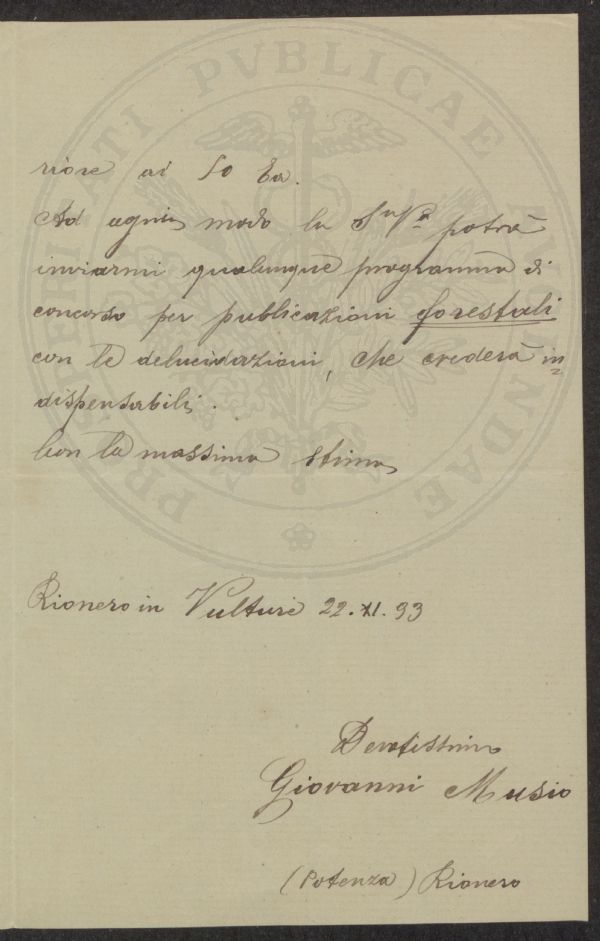 riore ai 50 Ea.
Ad ogni modo la S.ª V.ª potrà
inviarmi qualunque programma di
concorso per publicazioni forestali
con le delucidazioni, che crederà in=
dispensabili.
Con la massima stima
Rionero in Vulture 22. XI. 93
Devotissimo
Giovanni Musio
(Potenza) Rionero